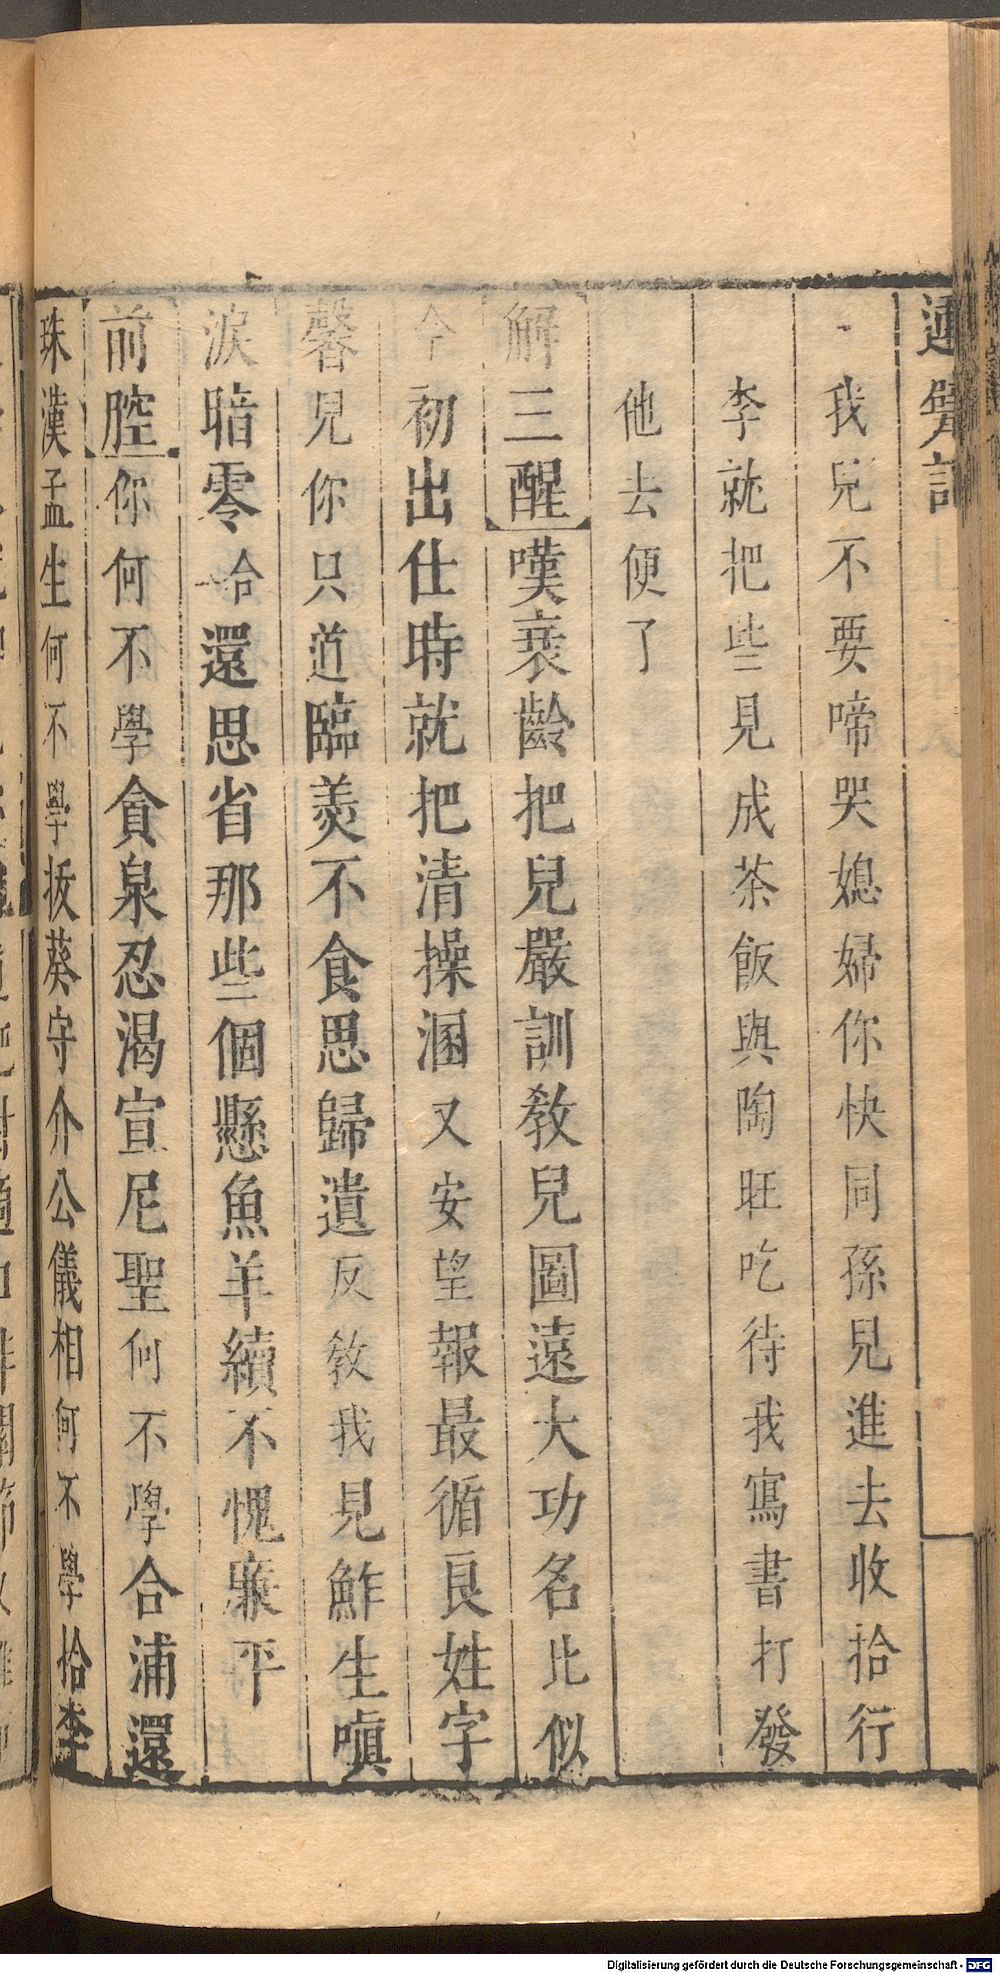 運甓記
我兒不要啼哭媳婦你快同孫兒進去收拾行
李就把些見成茶飯與陶旺吃待我寫書打發
他去便了
解三酲嘆衰齡把兒嚴訓教兒圖遠大功名比似
今初出仕時就把清操溷又安望報最循良姓字
馨兒你只道臨羨不食思歸遺反教我見鮓生嗔
淚暗零合還思省那些個懸魚羊續不愧亷平
前腔你何不學貪泉忍渴宣尼聖何不學合浦還
珠漢孟生何不學拔葵守介公儀相何不學拾李
Digitalisierung gefördert durch die Deutsche Forschungsgemeinschaft - DFG